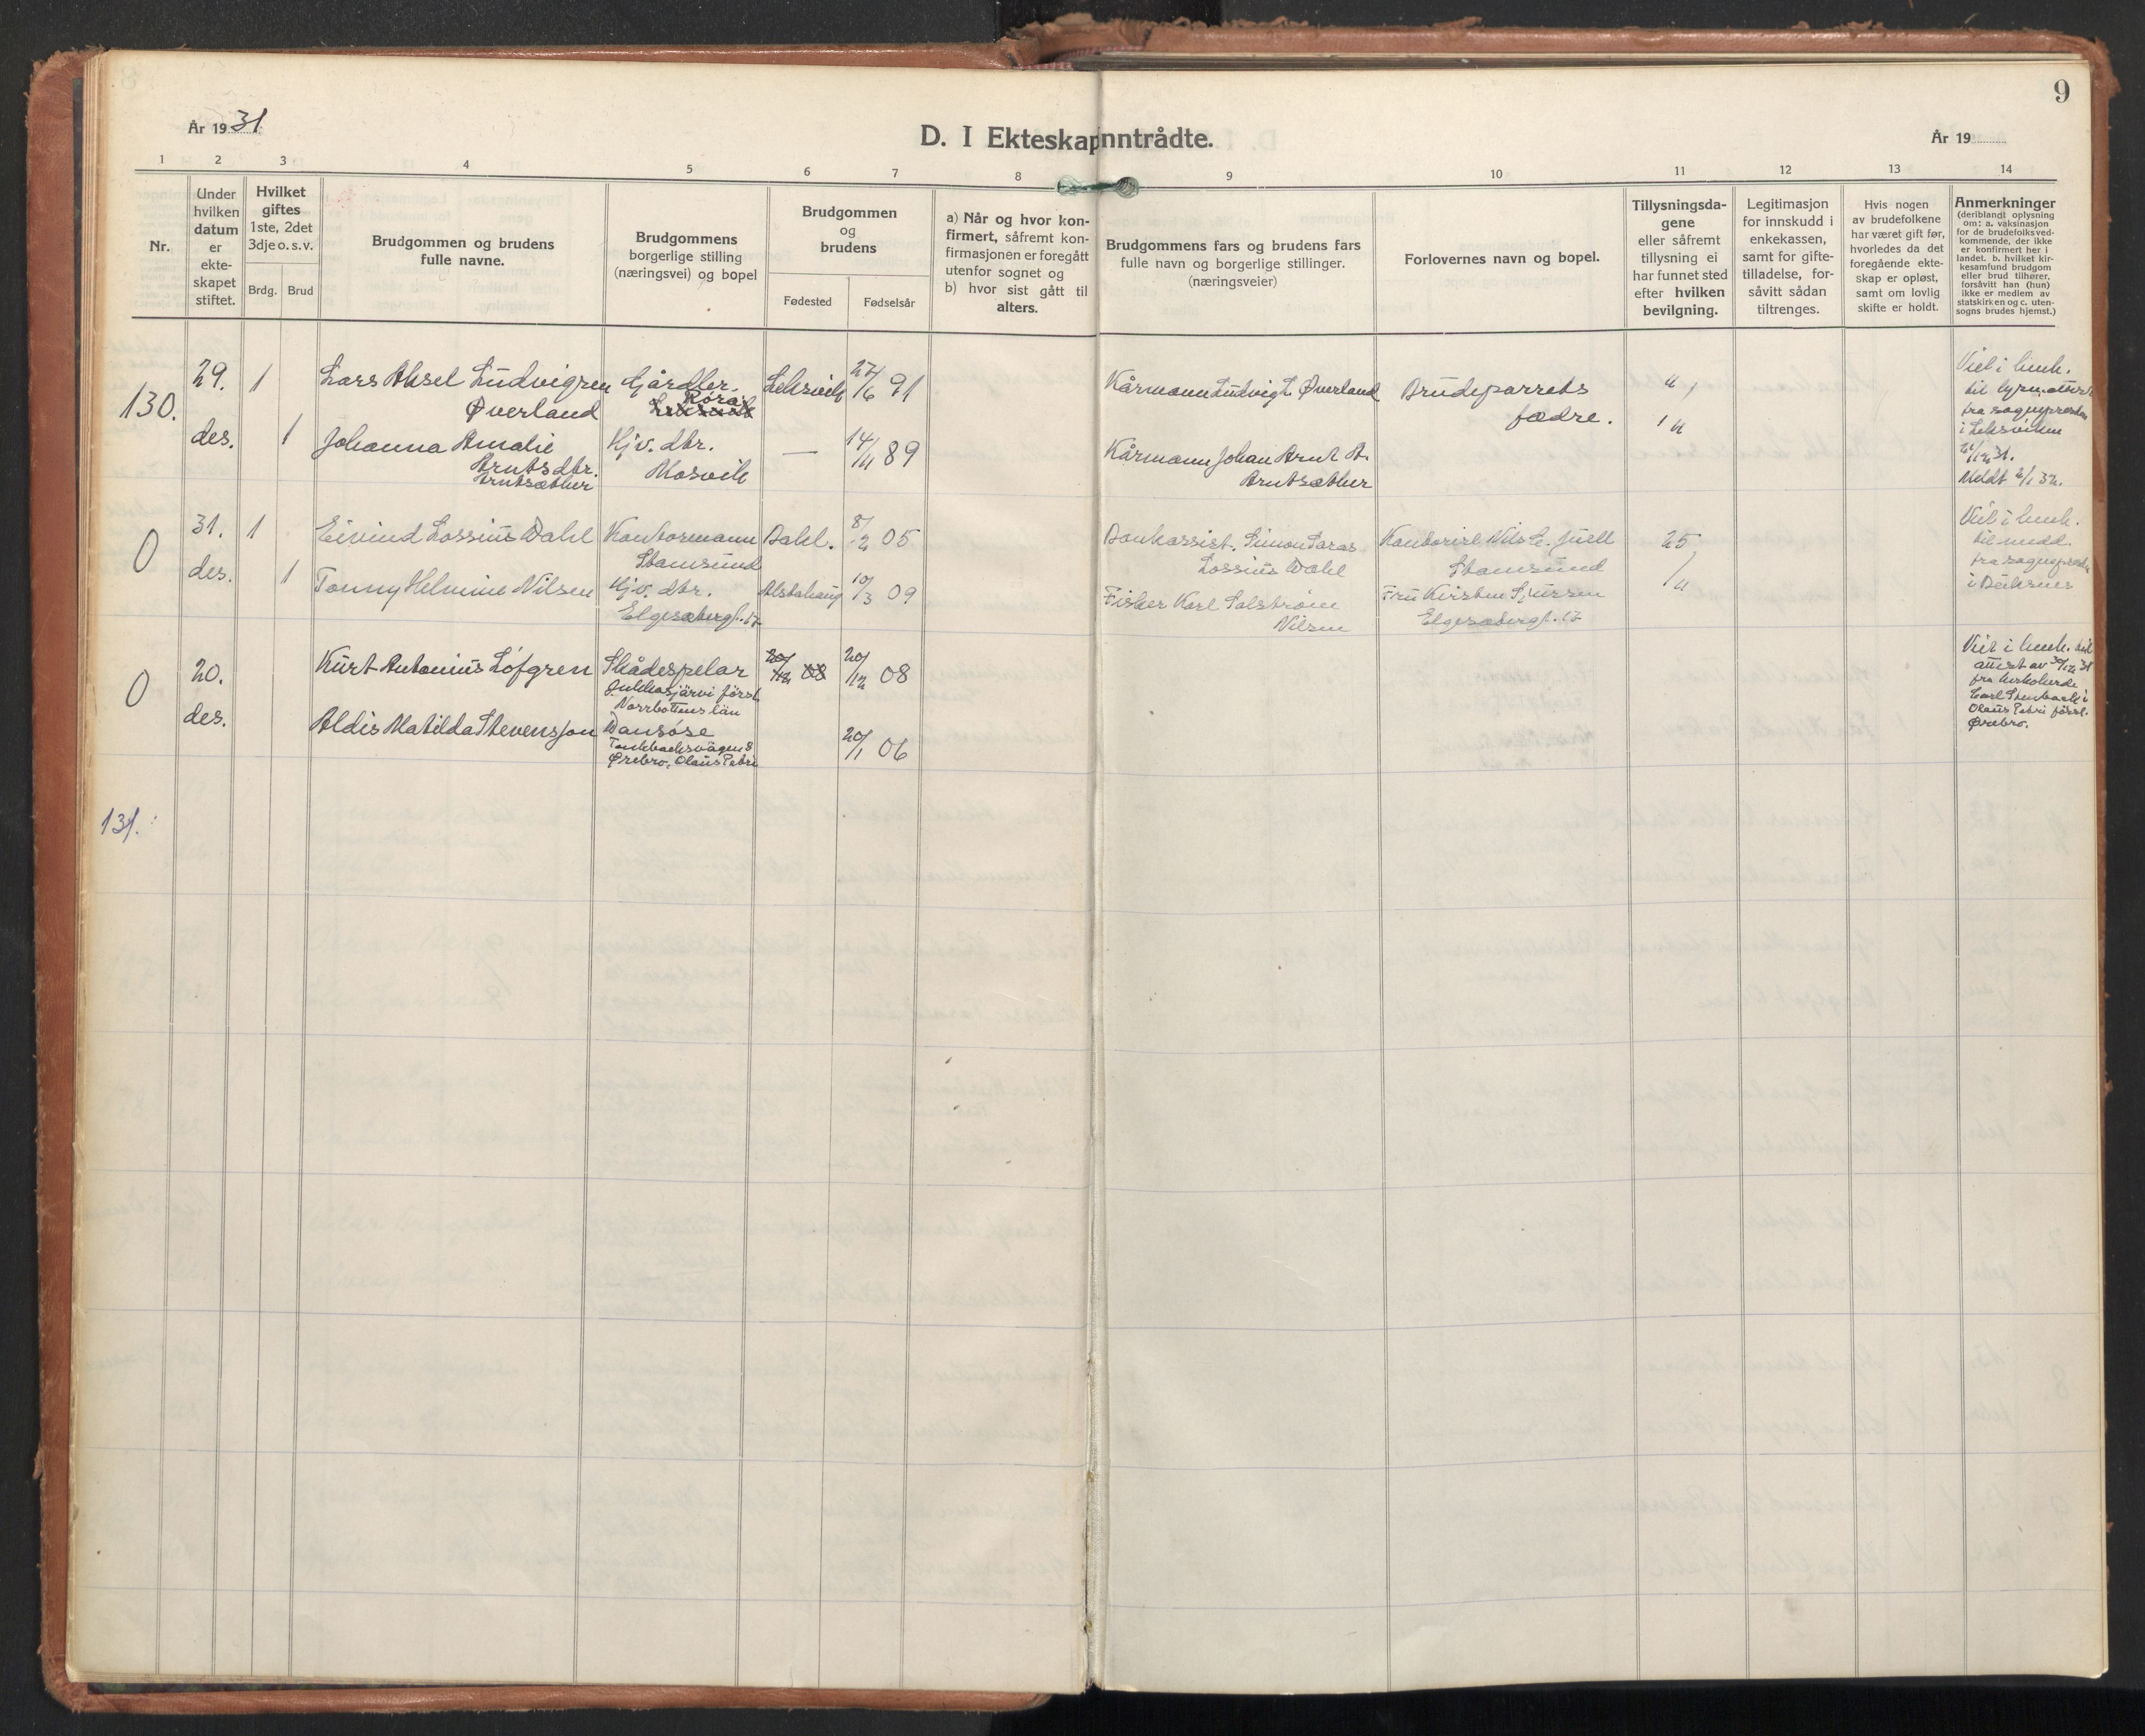 9
År 1931
D. I Ekteskap inntrådte.
År 19
1 2 3 4 5 6 7 8 9 10 11 12 13 14
Nr.
Under
hvilken
datum
er
ekte-
skapet
stiftet.
Hvilket
giftes
1ste, 2det
3dje o. s. v.
Brdg. Brud
Brudgommen og brudens
fulle navne.
Brudgommens
borgerlige stilling
(næringsvei) og bopel
Brudgommen
og
brudens
Fødested Fødselsår
a) Når og hvor kon-
firmert, såfremt kon-
firmasjonen er foregått
utenfor sognet og
b) hvor sist gått til
alters.
Brudgommens fars og brudens fars
fulle navn og borgerlige stillinger.
(næringsveier)
Forlovernes navn og bopel.
Tillysningsda-
gene
eller såfremt
tillysning ei
har funnet sted
efter hvilken
bevilgning.
Legitimasjon
for innskudd i
enkekassen,
samt for gifte-
tilladelse, for-
såvitt sådan
tiltrenges.
Hvis nogen
av brudefolkene
har været gift før,
hvorledes da det
foregående ekte-
skap er opløst,
samt om lovlig
skifte er holdt.
Anmerkninger
(deriblandt oplysning
om: a. vaksinasjon
for de brudefolksved-
kommende, der ikke
er konfirmert her i
landet. b. hvilket kir-
kesamfund brudgom
eller brud tilhører,
forsåvitt han (hun)
ikke er medlem av
statskirken og c. uten-
sogns brudes hjemst.)
130.
29.
des.
1
Lars Aksel Ludvigsen
Øverland
Gårdbr.
Røra
Leksvik
27/6 91
Kårmann Ludvig L. Øverland
Brudeparrets
fædre.
Viet i henh.
fra sognepresten
i Leksviken
Meldt 2/1 32.
1
Johanna Amalie
Arntsdtr.
Arntsæther
Hjv. dtr.
Mosvik
—
14/11 89
Kårmann Johan Arnt A.
Arntsæther
0
31.
des.
1
Eivind Lossius Dahl
Kontormann
Stamsund
Dahl.
8/2 05
Bankassist. Simon
Lossius Dahl
Kontorist Nils
Stamsund
25
Viet i henh.
til medd.
fra sogneprest
1
Tonny Helmine Nilsen
Hjv. dtr.
Elgesætergt. 17
Alstahaug
10/3 09
Fisker Karl Salstrøm
Nilsen
Fru Kirsten
Elgesætergt. 17
0
20.
des.
Kurt Antonius Löfgren
Skådespelar
Jukkasjärvi förs.
Norrbottens län
20/12 08
20/12 08
Viet i henh. til
attest av 30/12 31
fra kirkoherde
Carl Stenbach i
Olaus Petri förs.
Ørebro.
Aldis Matilda Stevensson
Dansøse
Ørebro, Olaus Petri
20/1 06
131.